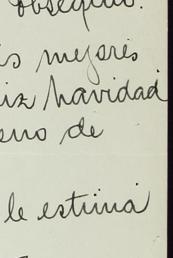 obsequio.
is mejores
iz navidad
eno de
le estima